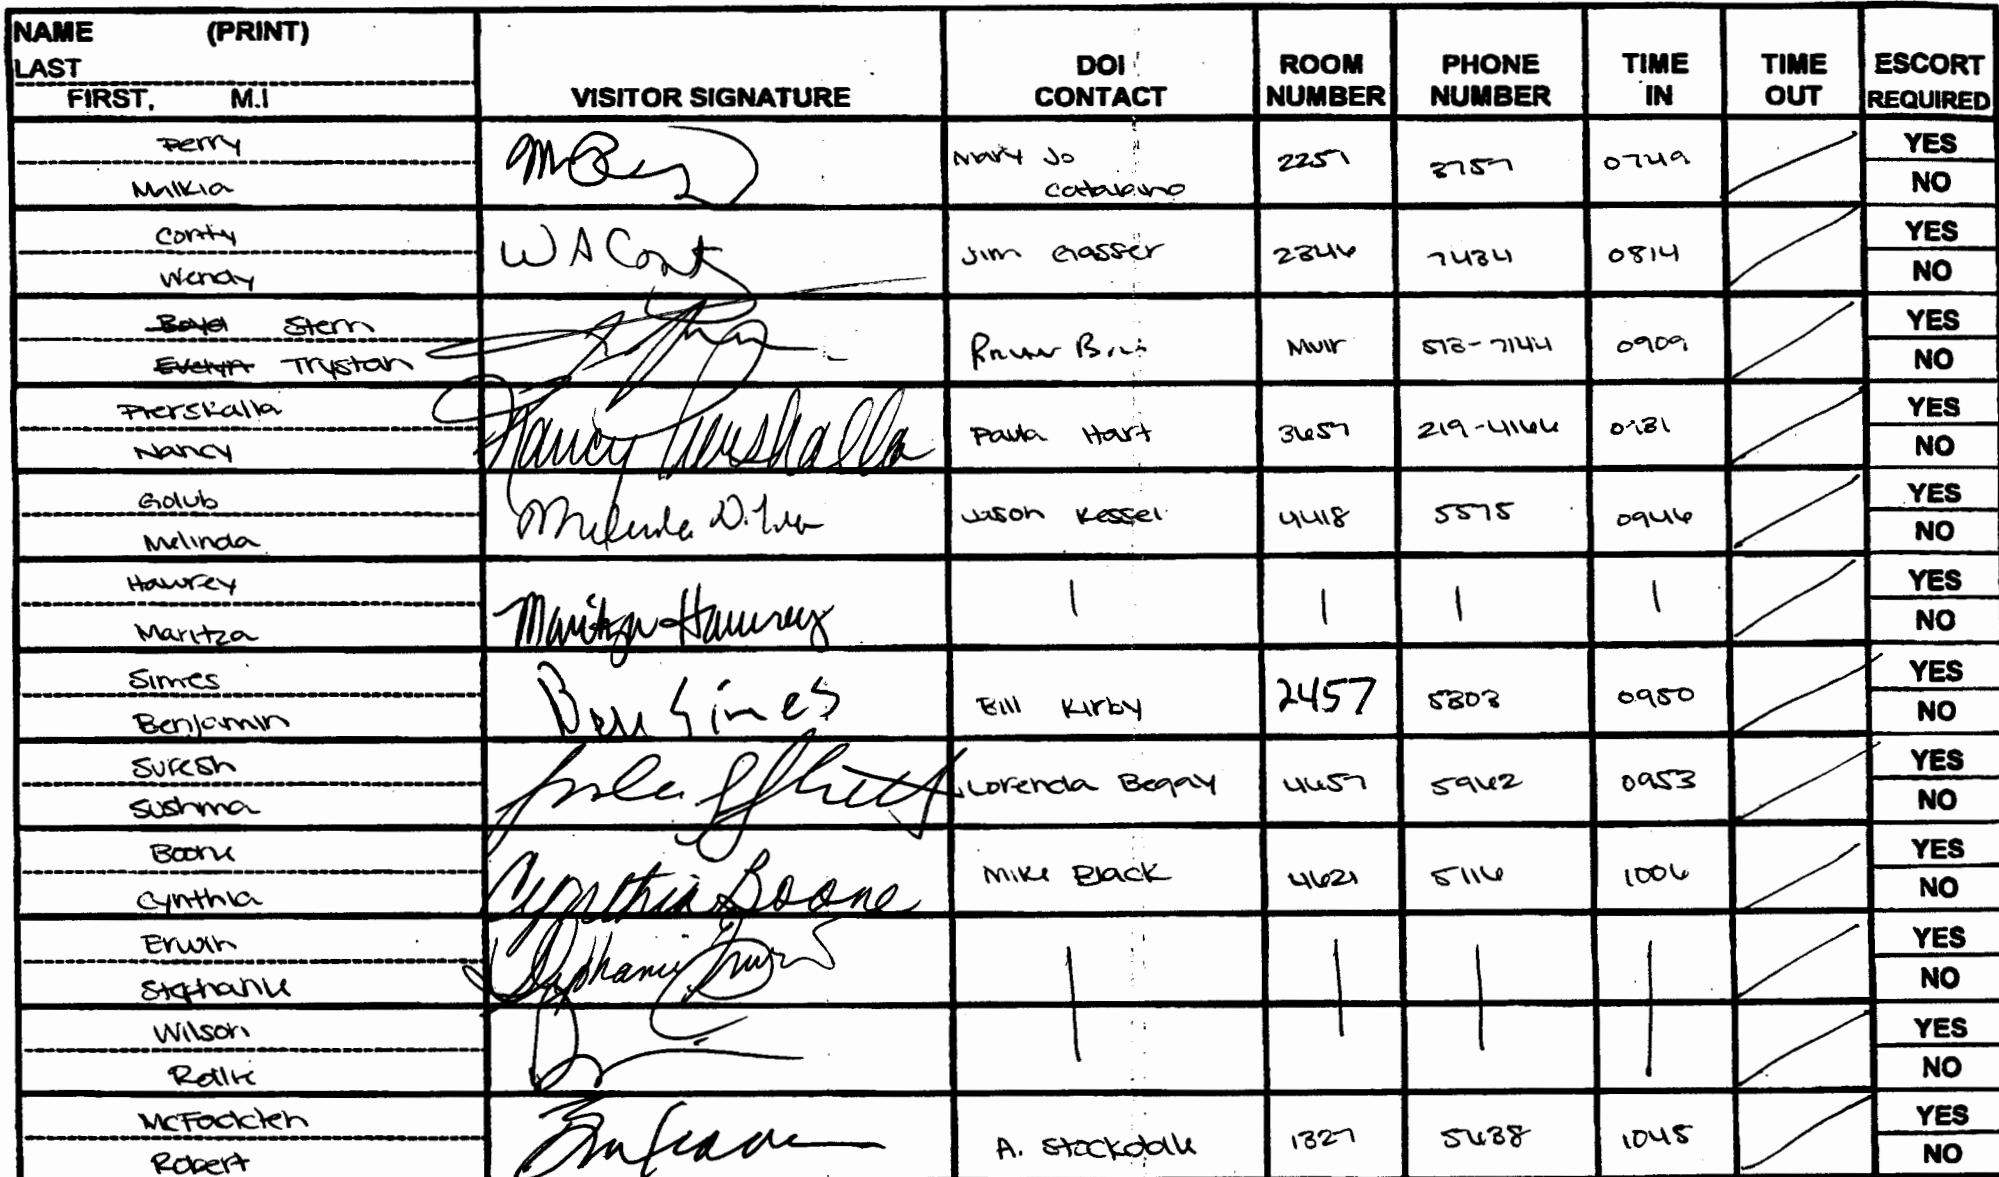 NAME (PRINT)
LAST
FIRST, M.I
VISITOR SIGNATURE
DOI CONTACT
ROOM NUMBER
PHONE NUMBER
TIME IN
TIME OUT
ESCORT REQUIRED
Perry
Malkia
Mary Jo
2257 3757 0749
YES
NO
Conty
Wendy
W A Conty
Jim Gasser
2346 7434 0814
YES
NO
Boyd Stern
Evelyn Trystan
Muir 513-7144 0909
YES
NO
Pierskalla
Nancy
Nancy Pierskalla
Paula Hart
3657 219-4166
YES
NO
Golub
Melinda
Melinda
Jason Kessel
4418 5575 0946
YES
NO
Hawrey
Maritza
Maritza Hawrey
YES
NO
Simes
Benjamin
Ben Simes
Bill Kirby
2457 5303 0950
YES
NO
Suresh
Sushma
Lorenda Begay
4657 5962 0953
YES
NO
Boone
Cynthia
Cynthia Boone
Mike Black
4621 5116 1006
YES
NO
Erwin
Stephanie
Stephanie Erwin
YES
NO
Wilson
Rollie
YES
NO
McFadden
Robert
A. Stockdale
1327 5638 1045
YES
NO